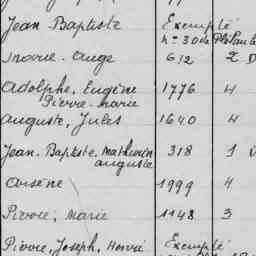 Jean Baptiste Exempté
n° 30 de
Marie-Ange 612 2
Adolphe, Eugène 1776 4
Pierre-Marie
Auguste, Jules 1640 4
Jean-Baptiste, Mathurin 318 1
Auguste
Arsène 1999 4
Pierre, Marie 1148 3
Pierre, Joseph, Henri Exempté